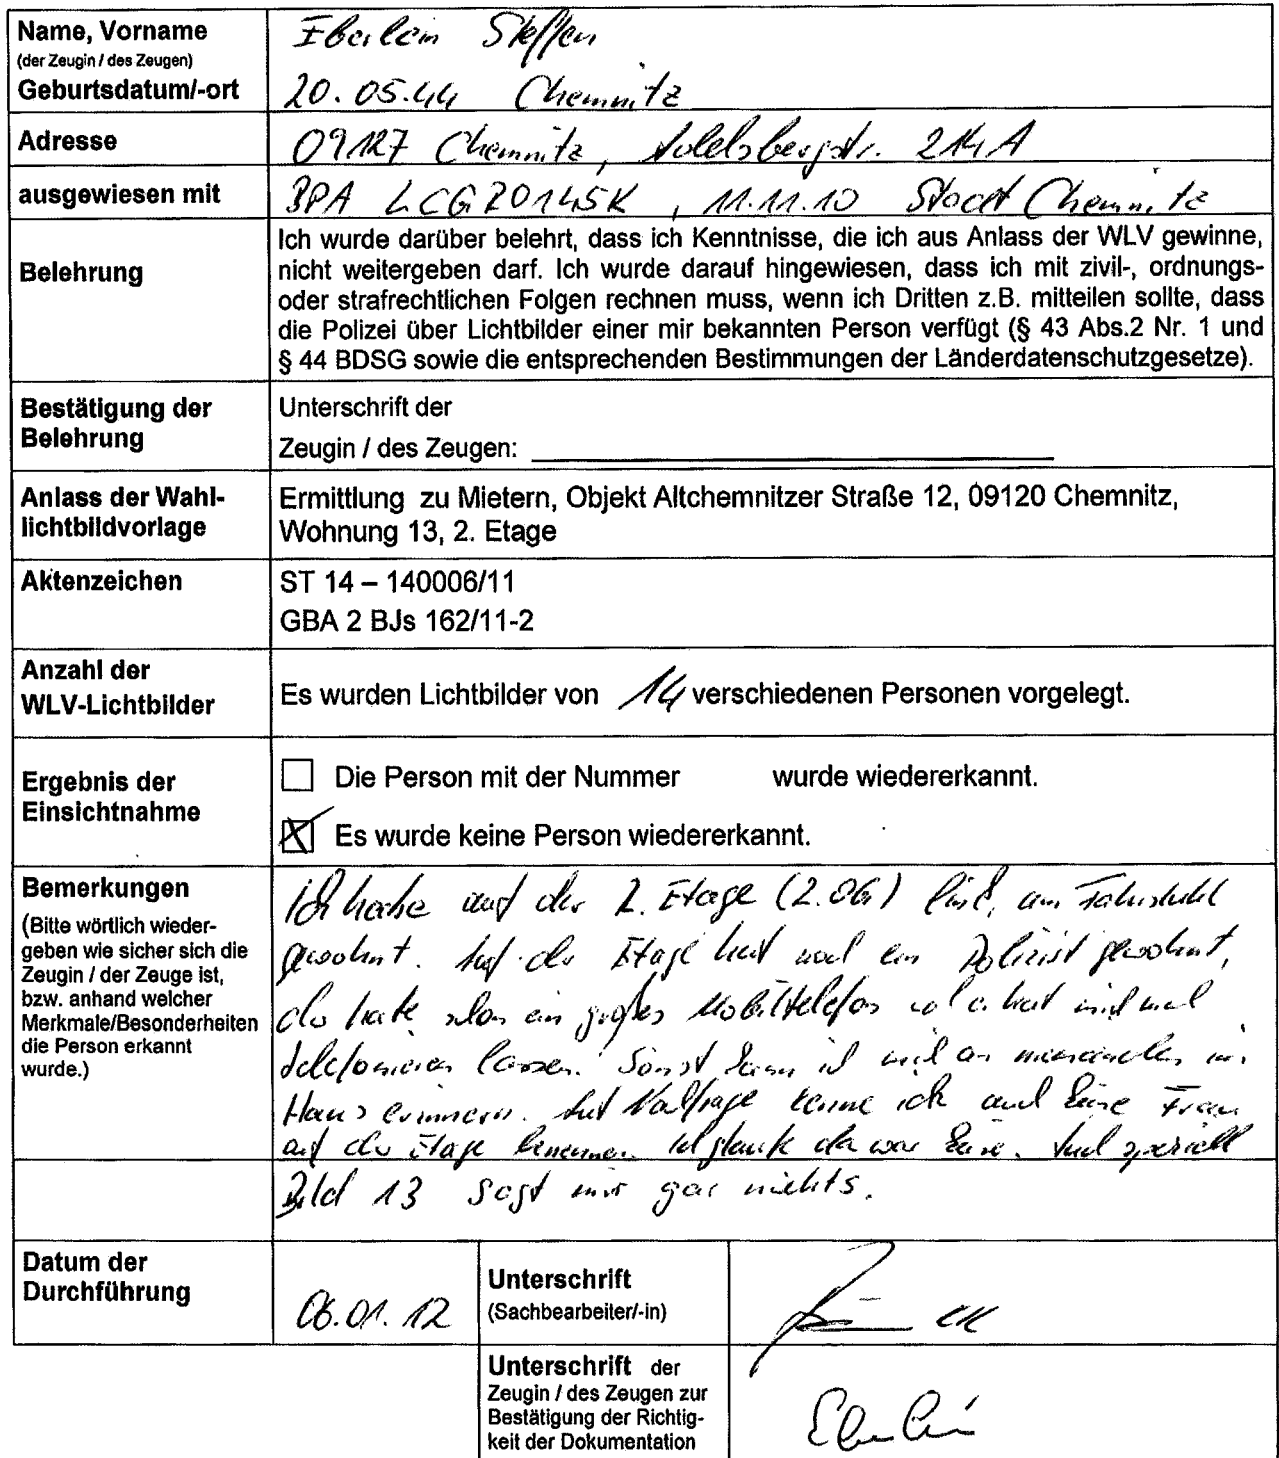 Name, Vorname
(der Zeugin / des Zeugen)
Eberlein Steffen
Geburtsdatum/-ort
20.05.44 Chemnitz
Adresse
09127 Chemnitz, Adelsbergstr. 214A
ausgewiesen mit
BPA LCGZ0145K, 11.11.10 Stadt Chemnitz
Belehrung
Ich wurde darüber belehrt, dass ich Kenntnisse, die ich aus Anlass der WLV gewinne,
nicht weitergeben darf. Ich wurde darauf hingewiesen, dass ich mit zivil-, ordnungs-
oder strafrechtlichen Folgen rechnen muss, wenn ich Dritten z.B. mitteilen sollte, dass
die Polizei über Lichtbilder einer mir bekannten Person verfügt (§ 43 Abs.2 Nr. 1 und
§ 44 BDSG sowie die entsprechenden Bestimmungen der Länderdatenschutzgesetze).
Bestätigung der
Belehrung
Unterschrift der
Zeugin / des Zeugen:
Anlass der Wahl-
lichtbildvorlage
Ermittlung zu Mietern, Objekt Altchemnitzer Straße 12, 09120 Chemnitz,
Wohnung 13, 2. Etage
Aktenzeichen
ST 14 – 140006/11
GBA 2 BJs 162/11-2
Anzahl der
WLV-Lichtbilder
Es wurden Lichtbilder von 14 verschiedenen Personen vorgelegt.
Ergebnis der
Einsichtnahme
Die Person mit der Nummer wurde wiedererkannt.
Es wurde keine Person wiedererkannt.
Bemerkungen
(Bitte wörtlich wieder-
geben wie sicher sich die
Zeugin / der Zeuge ist,
bzw. anhand welcher
Merkmale/Besonderheiten
die Person erkannt
wurde.)
Ich habe auf der 2. Etage (2.OG) links am Fahrstuhl
gewohnt. Auf der Etage hat noch ein Polizist gewohnt,
der hatte schon ein großes Mobiltelefon und er hat mich mal
telefonieren lassen. Sonst kann ich mich an niemanden im
Haus erinnern. Auf Nachfrage kenne ich auch keine Frau
auf der Etage benennen. Ich glaube da war keine. Auch speziell
Bild 13 sagt mir gar nichts.
Datum der
Durchführung
06.01.12
Unterschrift
(Sachbearbeiter/-in)
Unterschrift der
Zeugin / des Zeugen zur
Bestätigung der Richtig-
keit der Dokumentation
Eberlein